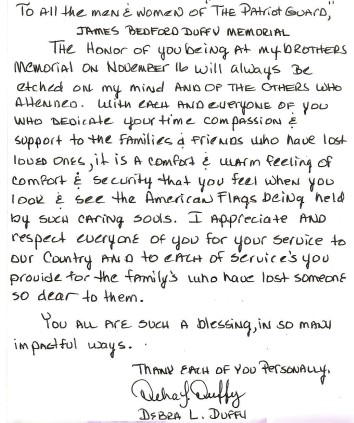 To All the men & women of "The Patriot Guard,"
James Bedford Duffy Memorial
The Honor of you being at my brothers
Memorial on November 16 will always be
etched on my mind and of the others who
attended. With each and everyone of you
who dedicate your time compassion &
support to the families & friends who have lost
loved ones, it is a comfort & warm feeling of
comfort & security that you feel when you
look & see the American Flags being held
by such caring souls. I appreciate and
respect everyone of you for your service to
our Country and to each of service's you
provide for the family's who have lost someone
so dear to them.
You all are such a blessing, in so many
impactful ways.
Thank each of you personally.
Debra L Duffy
Debra L. Duffy